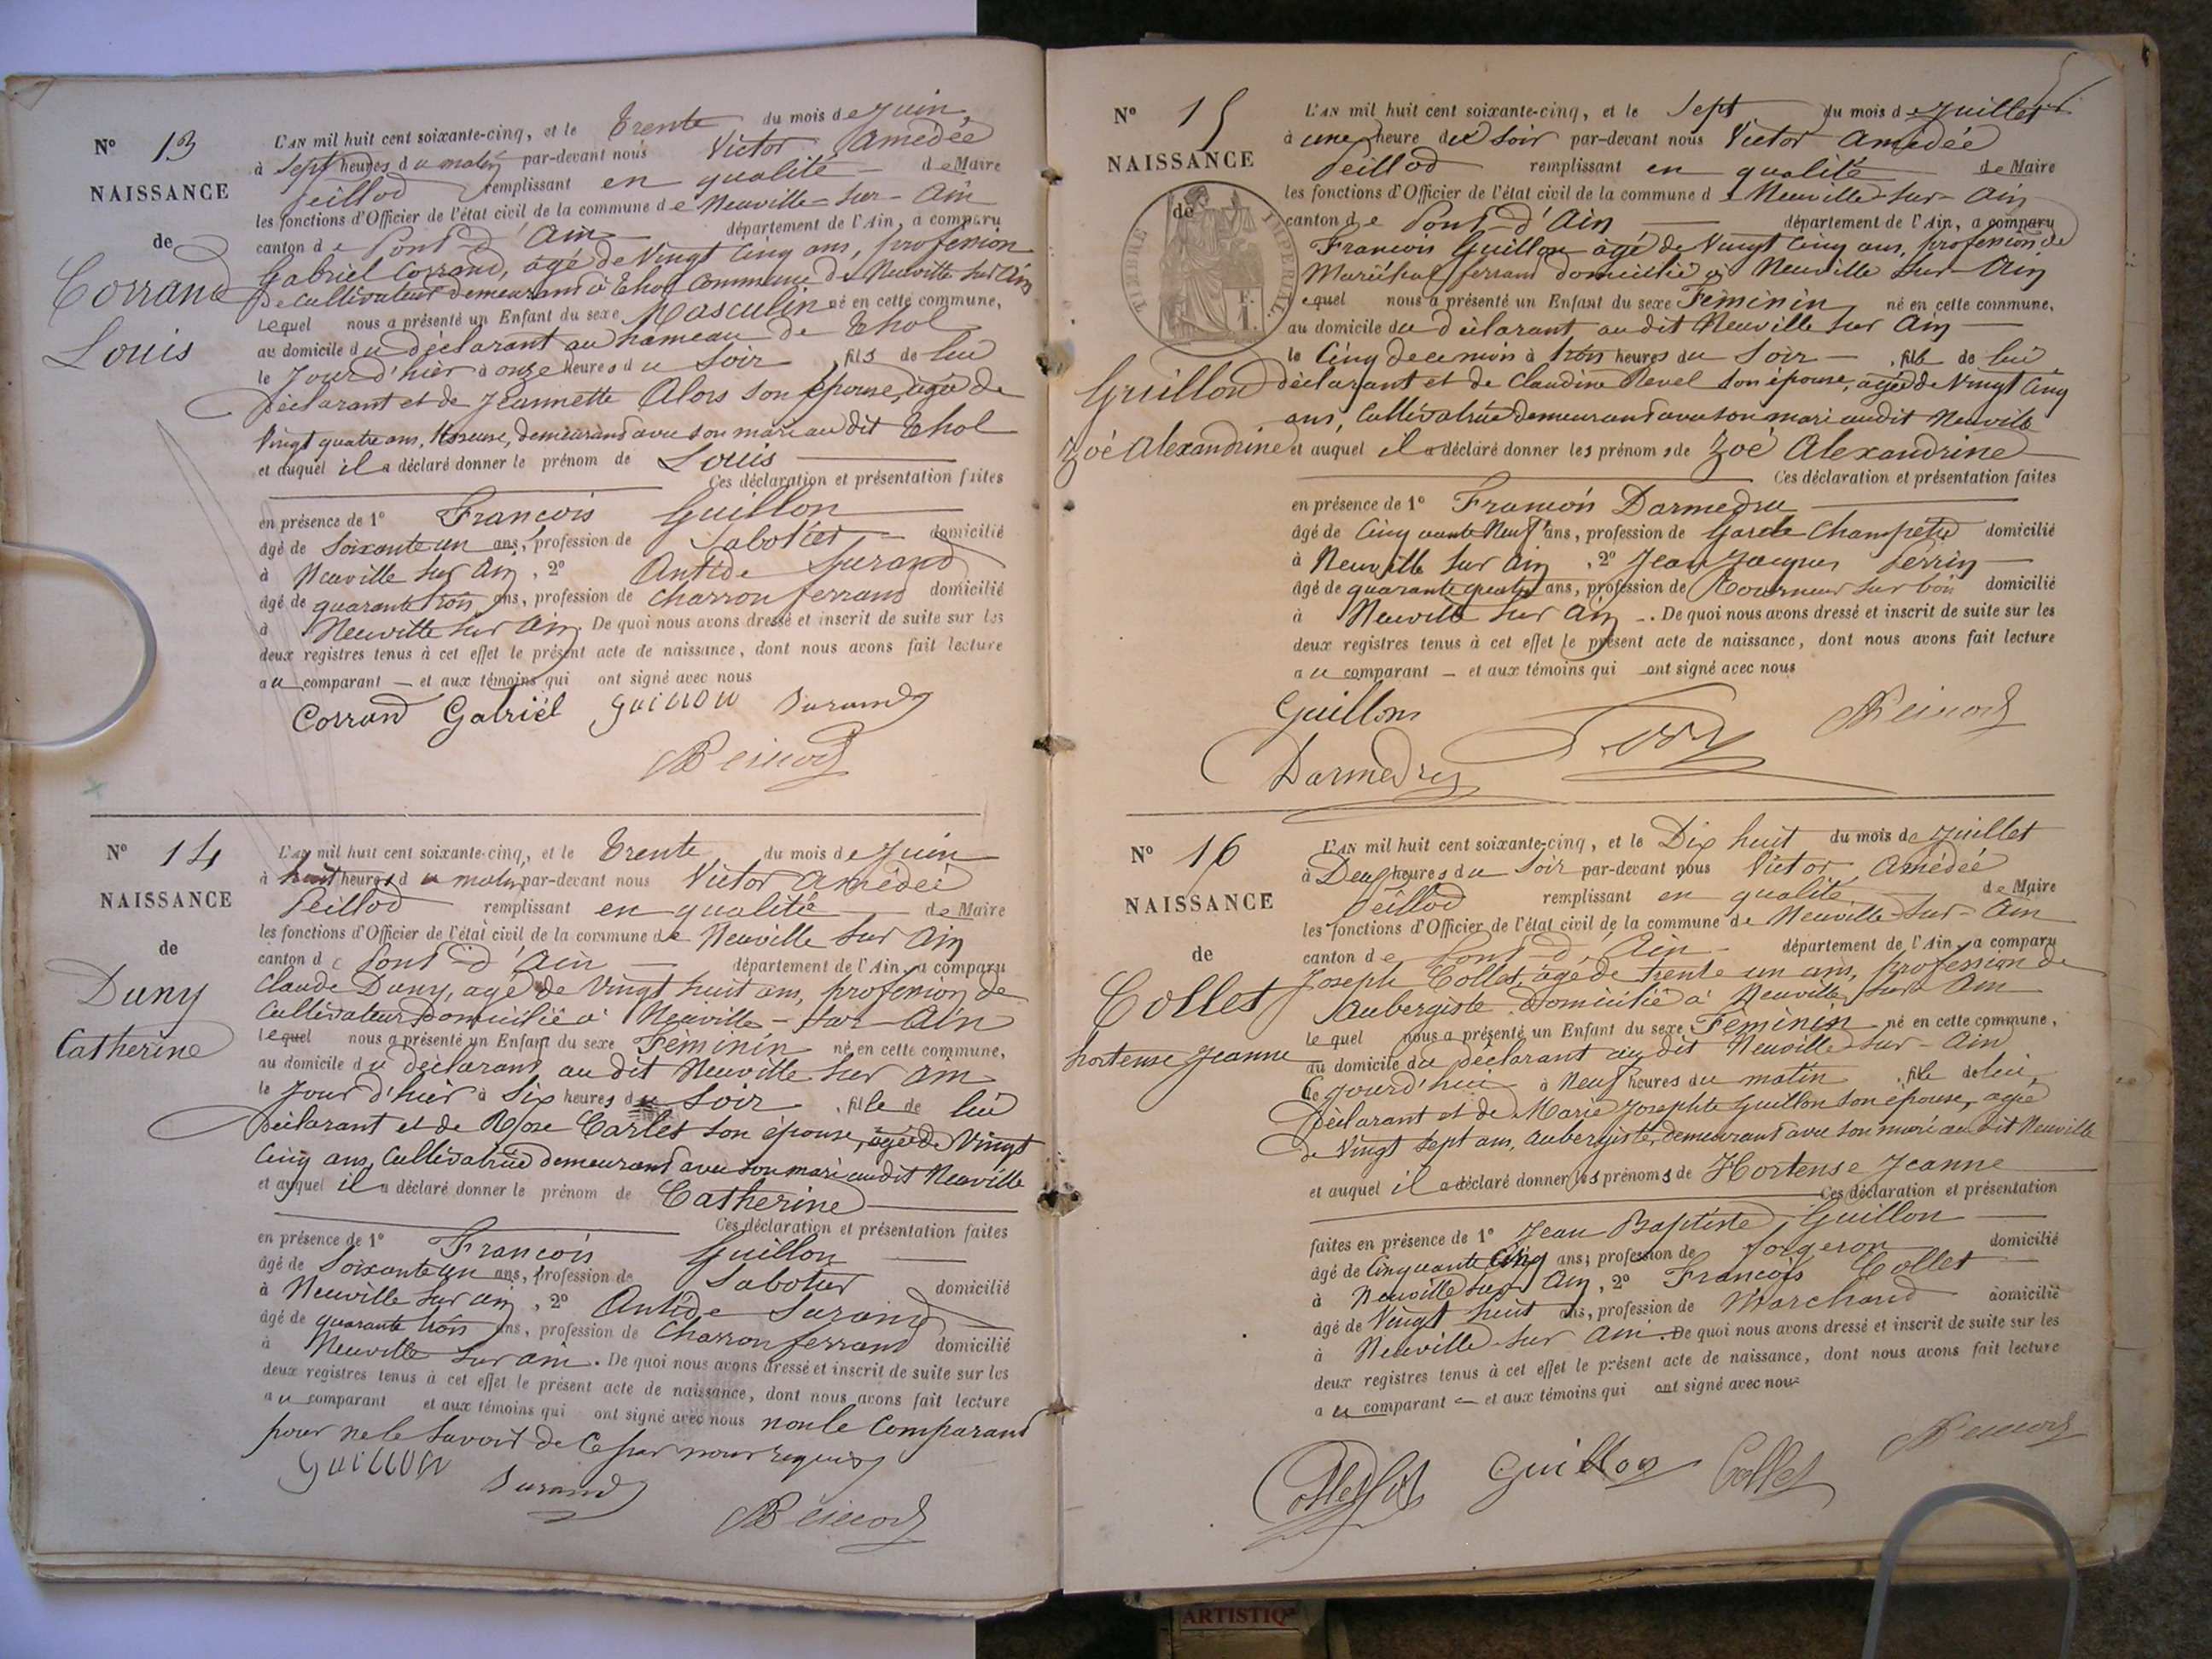 N° 13
NAISSANCE
de
Corrand
Louis
L'AN mil huit cent soixante-cinq, et le Trente du mois de Juin
à Sept heures du matin par-devant nous Victor Amédée
Peillod remplissant en qualité de Maire
les fonctions d'Officier de l'état civil de la commune de Neuville-sur-Ain
canton de Pont-d'Ain département de l'Ain, a comparu
Gabriel Corrand, âgé de Vingt Cinq ans, profession
de Cultivateur demeurant à Thol Commune de Neuville sur Ain
Lequel nous a présenté un Enfant du sexe Masculin né en cette commune,
au domicile du déclarant au hameau de Thol
le Jour d'hier à onze heures du Soir, fils de lui
Déclarant et de Jeannette Alors son épouse, âgée de
Vingt quatre ans, demeurant avec son mari au dit Thol
et auquel il a déclaré donner le prénom de Louis
Ces déclaration et présentation faites
en présence de 1° François Guillon
âgé de Soixante un ans, profession de Sabotier domicilié
à Neuville sur Ain, 2° Antide Durand
âgé de quarante trois ans, profession de Charron ferrand domicilié
à Neuville sur Ain. De quoi nous avons dressé et inscrit de suite sur les
deux registres tenus à cet effet le présent acte de naissance, dont nous avons fait lecture
au comparant — et aux témoins qui ont signé avec nous
Corrand Gabriël Guillon Durand
Peillod
N° 14
NAISSANCE
de
Duny
Catherine
L'AN mil huit cent soixante-cinq, et le Trente du mois de Juin
à huit heures du matin par-devant nous Victor Amédée
Peillod remplissant en qualité de Maire
les fonctions d'Officier de l'état civil de la commune de Neuville sur Ain
canton de Pont-d'Ain département de l'Ain, a comparu
Claude Duny, âgé de Vingt huit ans, profession de
Cultivateur Domicilié à Neuville-sur-Ain
lequel nous a présenté un Enfant du sexe Féminin né en cette commune,
au domicile du déclarant au dit Neuville sur Ain
le Jour d'hier à Six heures du Soir, fille de lui
Déclarant et de Rose Carlet son épouse, âgée de Vingt
Cinq ans, Cultivatrice demeurant avec son mari audit Neuville
et auquel il a déclaré donner le prénom de Catherine
Ces déclaration et présentation faites
en présence de 1° François Guillon
âgé de Soixante un ans, profession de Sabotier domicilié
à Neuville sur Ain, 2° Antide Durand
âgé de quarante trois ans, profession de Charron ferrand domicilié
à Neuville sur ain. De quoi nous avons dressé et inscrit de suite sur les
deux registres tenus à cet effet le présent acte de naissance, dont nous avons fait lecture
au comparant et aux témoins qui ont signé avec nous non le Comparant
pour ne le Savoir de Ce par nous requis
Guillon
Durand
Peillod
N° 15
NAISSANCE
de
TIMBRE IMPERIAL
Guillon
Zoé Alexandrine
L'AN mil huit cent soixante-cinq, et le Sept du mois de Juillet
à une heure du soir par-devant nous Victor Amédée
Peillod remplissant en qualité de Maire
les fonctions d'Officier de l'état civil de la commune de Neuville-sur-Ain
canton de Pont-d'Ain département de l'Ain, a comparu
François Guillon âgé de Vingt Cinq ans, profession de
Maréchal ferrand domicilié à Neuville sur Ain
lequel nous a présenté un Enfant du sexe Féminin né en cette commune,
au domicile du déclarant au dit Neuville sur Ain
le Cinq de ce mois à trois heures du Soir, fille de lui
déclarant et de Claudine Revel son épouse, âgée de Vingt Cinq
ans, Cultivatrice demeurant avec son mari audit Neuville
et auquel il a déclaré donner les prénoms de Zoé Alexandrine
Ces déclaration et présentation faites
en présence de 1° François Darmedru
âgé de Cinquante Neuf ans, profession de Garde Champetre domicilié
à Neuville sur Ain, 2° Jean Jacques Perrin
âgé de quarante quatre ans, profession de Tourneur sur bois domicilié
à Neuville sur Ain. De quoi nous avons dressé et inscrit de suite sur les
deux registres tenus à cet effet le présent acte de naissance, dont nous avons fait lecture
au comparant — et aux témoins qui ont signé avec nous
Guillon Peillod
Darmedru
N° 16
NAISSANCE
de
Collet
hortense Jeanne
L'AN mil huit cent soixante-cinq, et le Dix huit du mois de Juillet
à Deux heures du Soir par-devant nous Victor Amédée
Peillod remplissant en qualité de Maire
les fonctions d'Officier de l'état civil de la commune de Neuville-sur-Ain
canton de Pont-d'Ain département de l'Ain, a comparu
Joseph Collet, âgé de trente un ans, profession de
Aubergiste Domicilié à Neuville sur Ain
lequel nous a présenté un Enfant du sexe Féminin né en cette commune,
au domicile du déclarant au dit Neuville-sur-Ain
Ce jourd'hui à Neuf heures du matin, fille de lui
Déclarant et de Marie Josephte Guillon son épouse, agée
de Vingt Sept ans, Aubergiste, demeurant avec son mari au dit Neuville
et auquel il a déclaré donner les prénoms de Hortense Jeanne
Ces déclaration et présentation
faites en présence de 1° Jean Baptiste Guillon
âgé de Cinquante Cinq ans, profession de forgeron domicilié
à Neuville sur Ain, 2° François Collet
âgé de Vingt huit ans, profession de Marchand domicilié
à Neuville-sur Ain. De quoi nous avons dressé et inscrit de suite sur les
deux registres tenus à cet effet le présent acte de naissance, dont nous avons fait lecture
au comparant — et aux témoins qui ont signé avec nous
Guillon Collet Peillod
ARTISTIQ